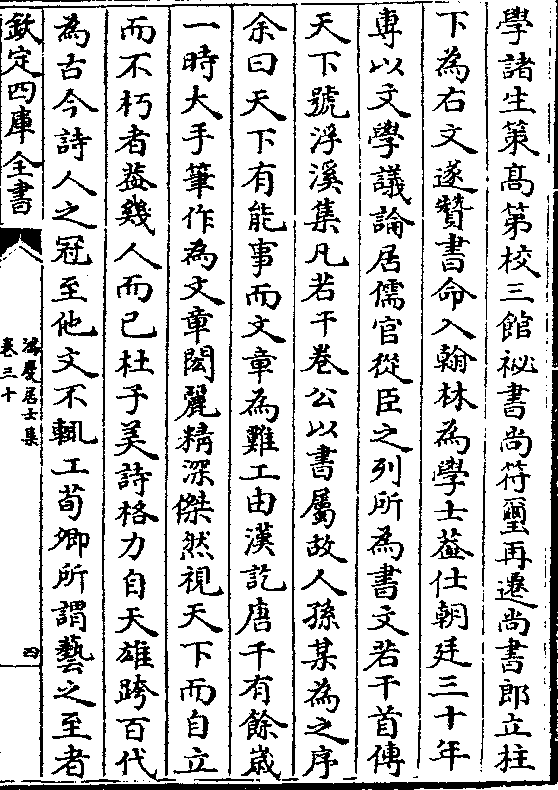 學諸生第髙第校三館祕書尚符璽再遷尚書郎立柱
下為右文遂賛書命入翰林為學士葢仕朝廷三十年
專以文學議論居儒官從臣之列所為書文若干首傳
天下號浮溪集凡若干卷公以書屬故人孫某為之序
余曰天下有能事而文章為難工由漢訖唐千有餘歳
一時大手筆作為文章閎麗精深傑然視天下而自立
而不朽者葢幾人而已杜子美詩格力自天雄跨百代
為古今詩人之冠至他文不輒工荀卿所謂藝之至者
欽定四庫全書
鴻慶居士集
卷三十
四